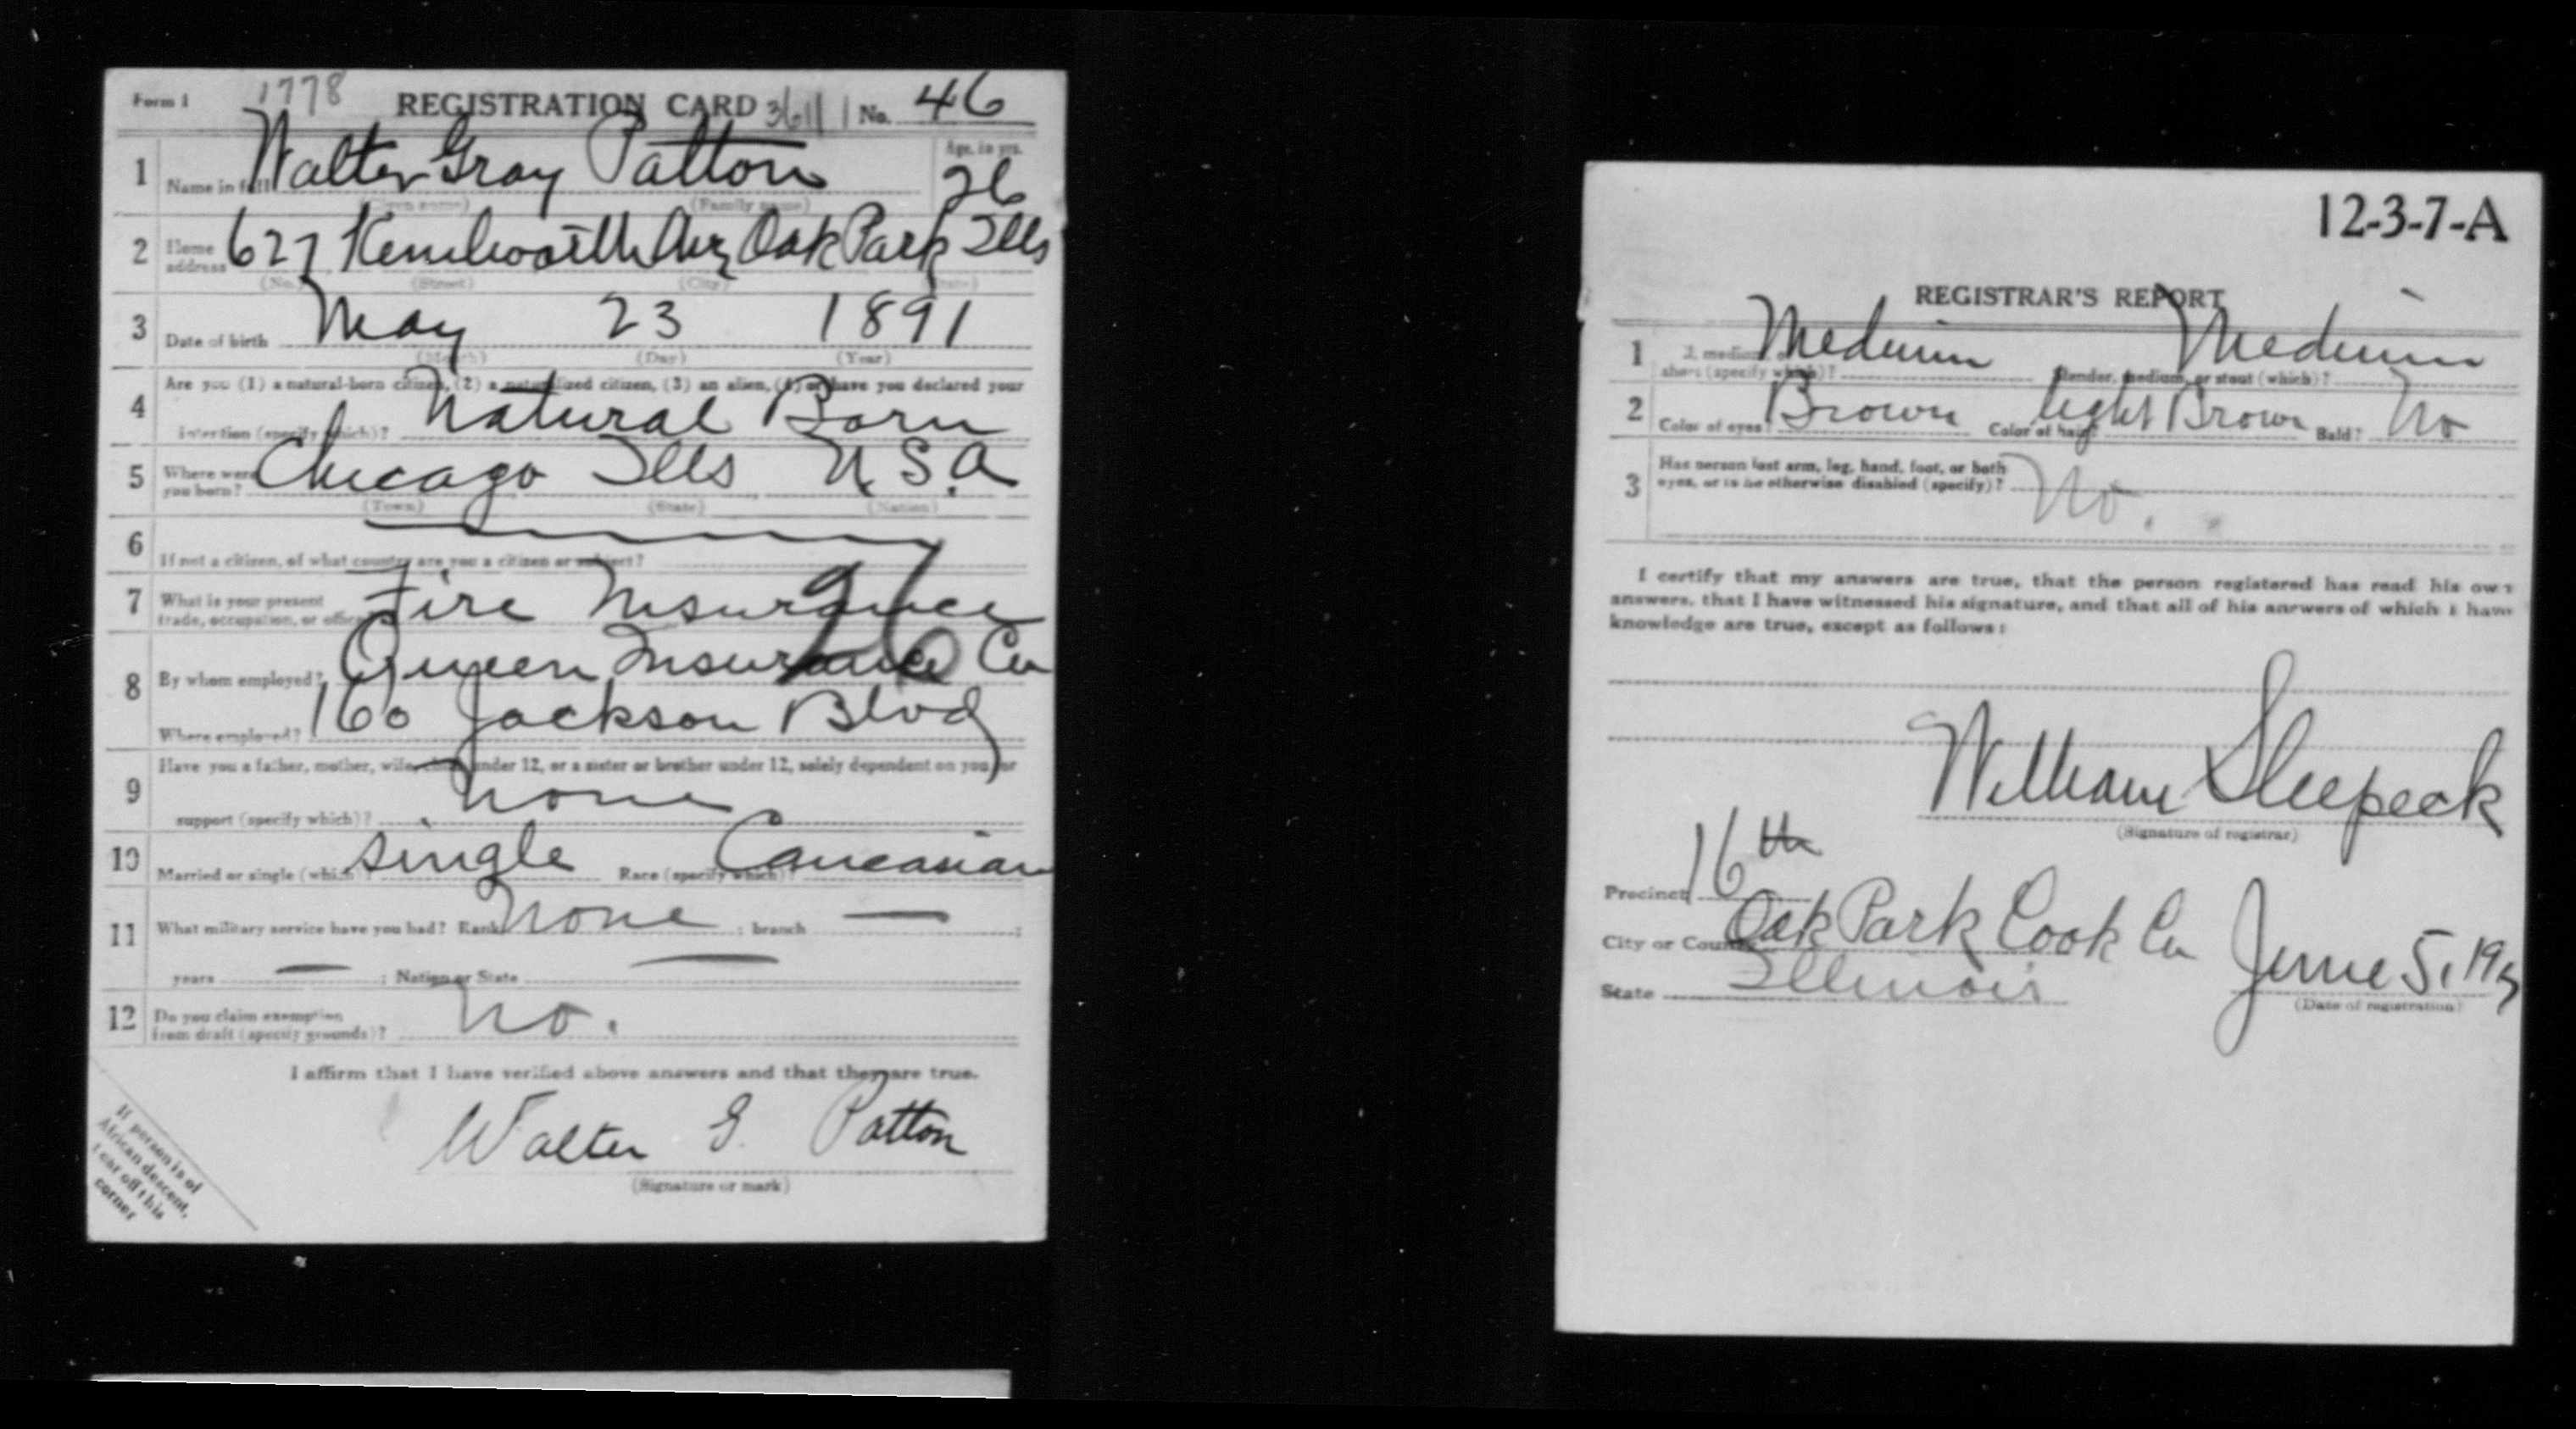 Form 1 1778 REGISTRATION CARD 3611 No. 46
1 Name in full Walter Gray Patton Age, in yrs. 26
(Given name) (Family name)
2 Home address 627 Kenilworth Ave Oak Park Ills
(No.) (Street) (City) (State)
3 Date of birth May 23 1891
(Month) (Day) (Year)
4 Are you (1) a natural-born citizen, (2) a naturalized citizen, (3) an alien, (4) or have you declared your
intention (specify which)? Natural Born
5 Where were you born? Chicago Ills U.S.A
(Town) (State) (Nation)
6 If not a citizen, of what country are you a citizen or subject?
7 What is your present trade, occupation, or office? Fire Insurance
8 By whom employed? Queen Insurance Co
Where employed? 160 Jackson Blvd
9 Have you a father, mother, wife, child under 12, or a sister or brother under 12, solely dependent on you for
support (specify which)? None
10 Married or single (which)? Single Race (specify which)? Caucasian
11 What military service have you had? Rank None ; branch — ;
years — ; Nation or State —
12 Do you claim exemption from draft (specify grounds)? No.
I affirm that I have verified above answers and that they are true.
Walter G. Patton
(Signature or mark)
If person is of
African descent,
tear off this
corner
12-3-7-A
REGISTRAR'S REPORT
1 Medium Slender, medium, or stout (which)? Medium
short (specify which)?
2 Color of eyes? Brown Color of hair? Light Brown Bald? No
3 Has person lost arm, leg, hand, foot, or both
eyes, or is he otherwise disabled (specify)? No.
I certify that my answers are true, that the person registered has read his own
answers, that I have witnessed his signature, and that all of his answers of which I have
knowledge are true, except as follows:
William Sleepeck
(Signature of registrar)
Precinct 16th
City or County Oak Park Cook Co June 5, 1917
State Illinois (Date of registration)